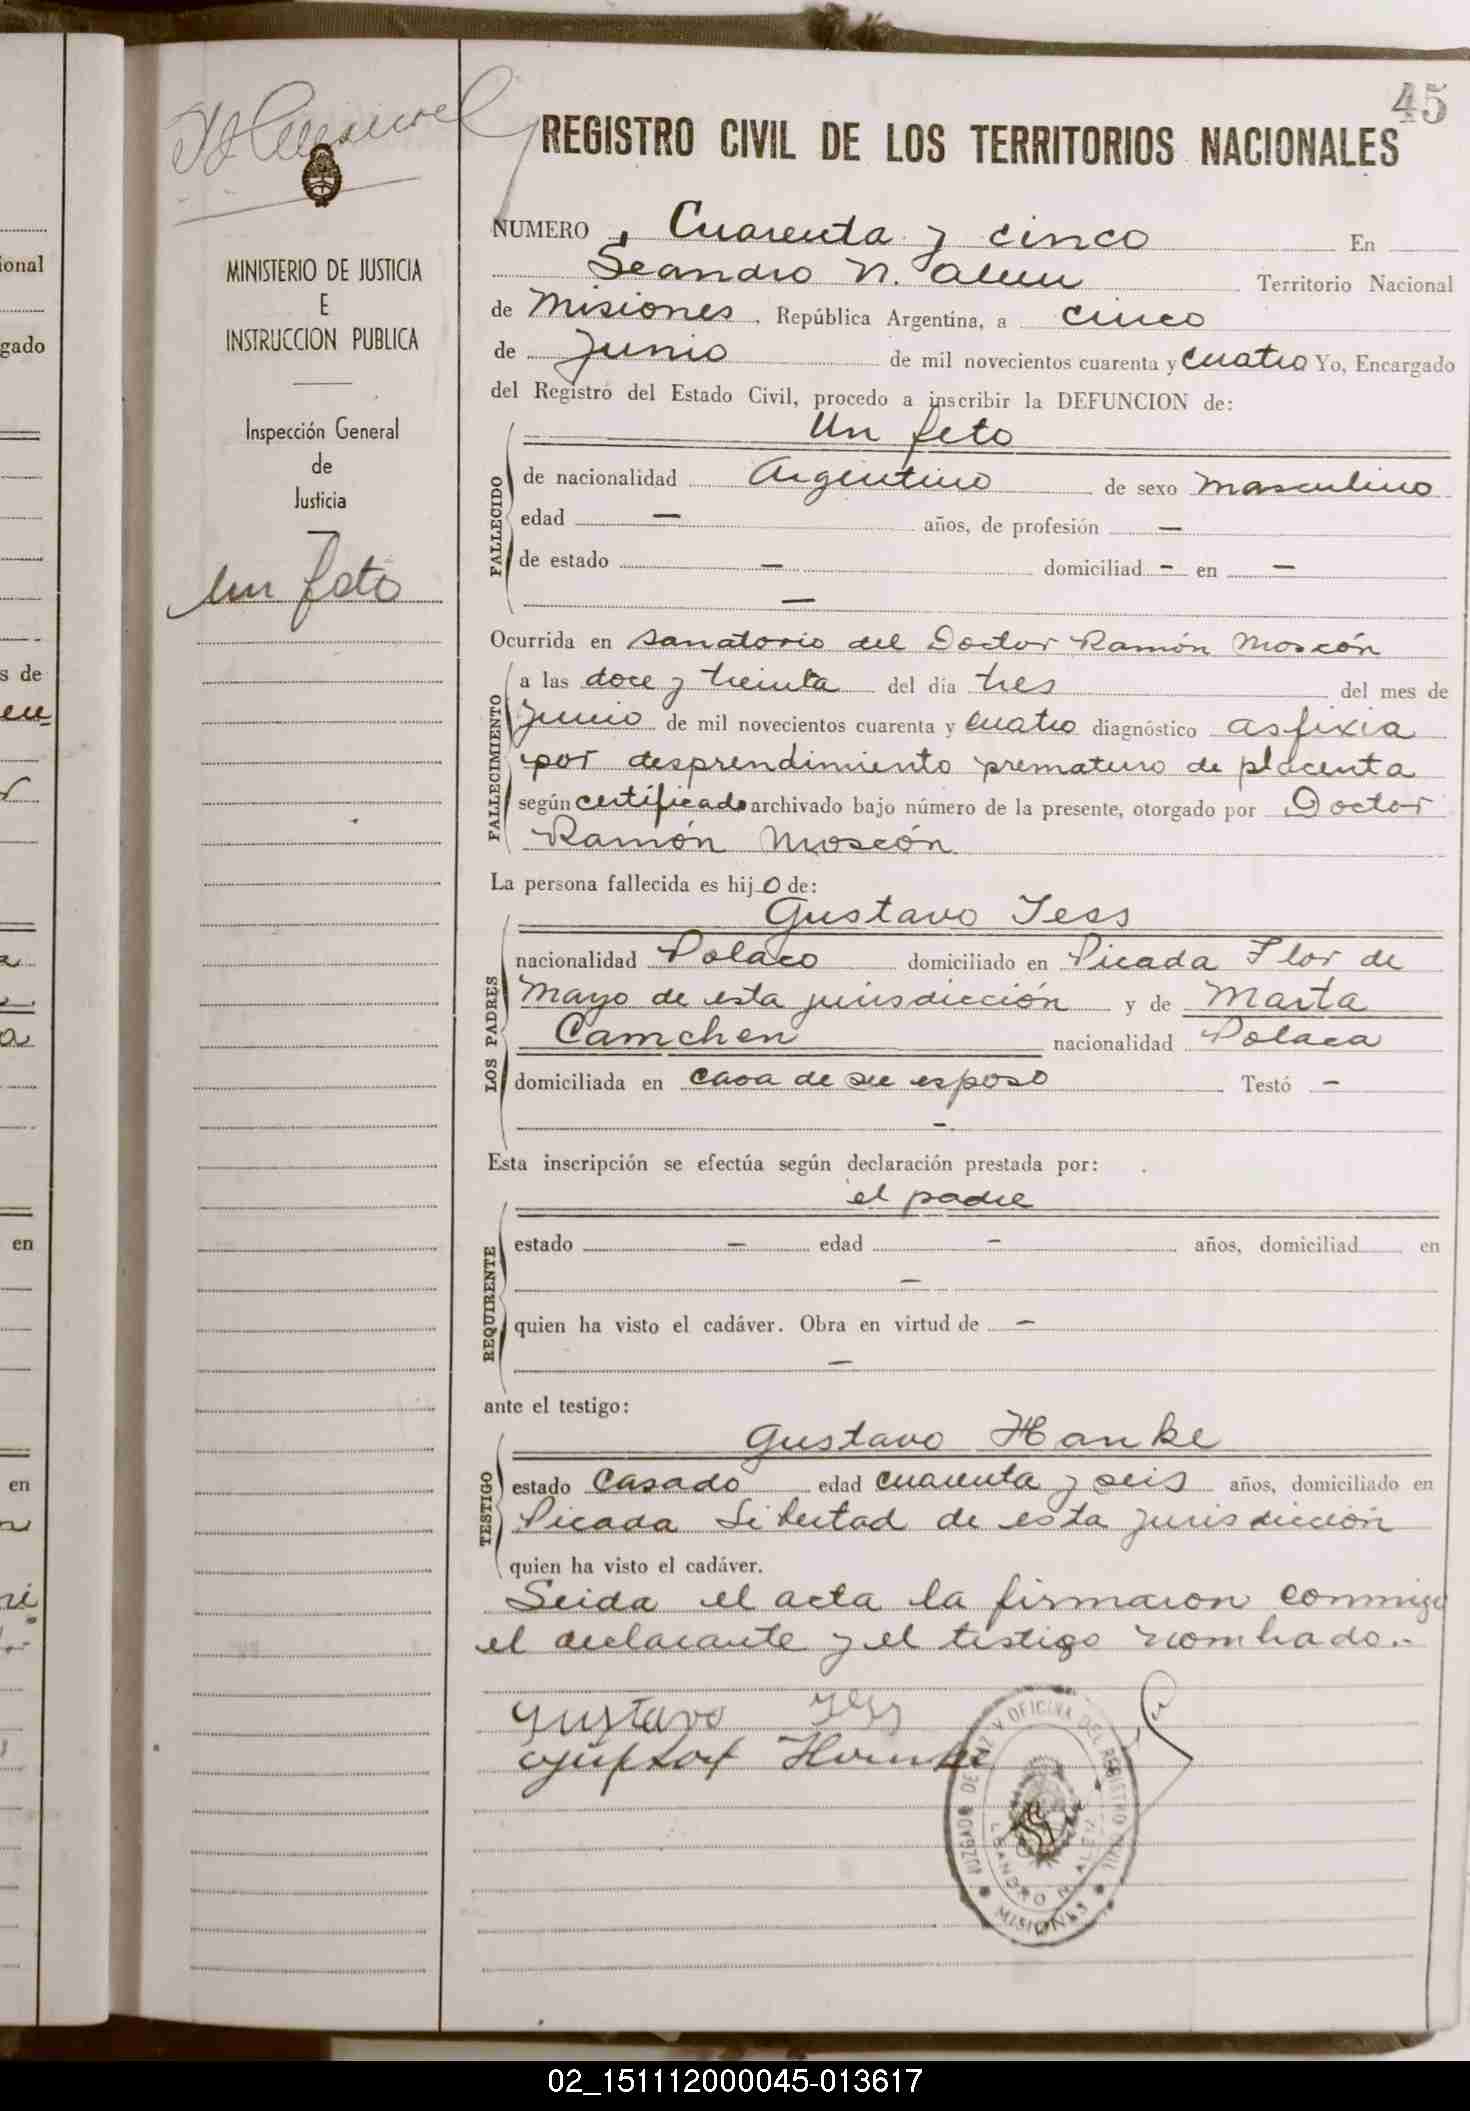 45
REGISTRO CIVIL DE LOS TERRITORIOS NACIONALES
MINISTERIO DE JUSTICIA
E
INSTRUCCION PUBLICA
Inspección General
de
Justicia
un feto
NUMERO Cuarenta y cinco En
Leandro N. Alem Territorio Nacional
de Misiones, República Argentina, a cinco
de Junio de mil novecientos cuarenta y cuatro Yo, Encargado
del Registro del Estado Civil, procedo a inscribir la DEFUNCION de:
Un feto
FALLECIDO
de nacionalidad Argentino de sexo masculino
edad — años, de profesión —
de estado — domiciliad — en —
—
Ocurrida en sanatorio del Doctor Ramón Moscón
FALLECIMIENTO
a las doce y treinta del día tres del mes de
Junio de mil novecientos cuarenta y cuatro diagnóstico asfixia
por desprendimiento prematuro de placenta
según certificado archivado bajo número de la presente, otorgado por Doctor
Ramón Moscón
La persona fallecida es hijo de:
LOS PADRES
Gustavo Jess
nacionalidad Polaco domiciliado en Picada Flor de
Mayo de esta jurisdicción y de Marta
Camchen nacionalidad Polaca
domiciliada en casa de su esposo Testó —
-
Esta inscripción se efectúa según declaración prestada por:
el padre
REQUIRENTE
estado — edad — años, domiciliad en
—
quien ha visto el cadáver. Obra en virtud de —
—
ante el testigo:
Gustavo Hanke
TESTIGO
estado Casado edad cuarenta y seis años, domiciliado en
Picada Libertad de esta jurisdicción
quien ha visto el cadáver.
Leida el acta la firmaron conmigo
el declarante y el testigo nombrado.-
Gustavo Jess
Gustav Hanke
JUZGADO DE PAZ Y OFICINA DEL REGISTRO CIVIL
LEANDRO N. ALEM
MISIONES
ional
gado
s de
en
en
02_151112000045-013617